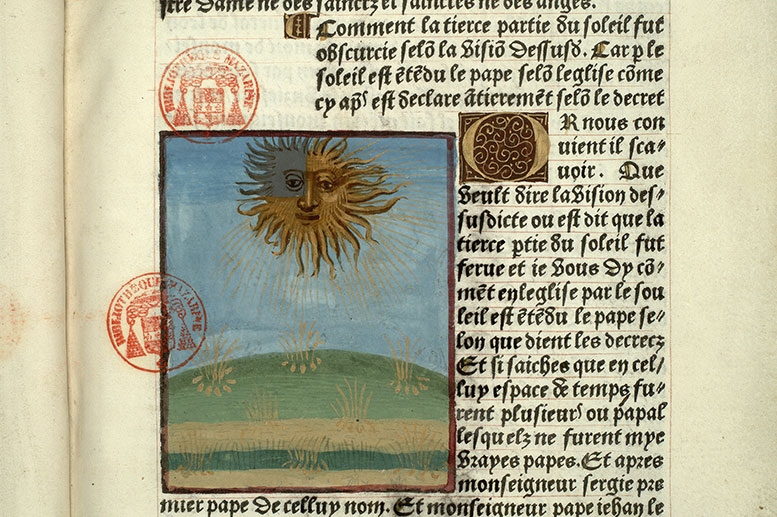 stre dame ne des sainctz et sainctes ne des anges.
Comment la tierce partie du soleil fut
obscurcie selõ la visiõ dessusd. Car p le
soleil est ẽtẽdu le pape selõ leglise cõme
cy apˢ est declare ãtieremẽt selõ le decret
OR nous con
uient il sca⸗
uoir. Que
veult dire la vision des⸗
susdicte ou est dit que la
tierce ptie du soleil fut
ferue et ie vous dy cõ⸗
mẽt en leglise par le sou
leil est ẽtẽdu le pape se⸗
lon que dient les decretz
Et si saiches que en cel⸗
luy espace de temps fu⸗
rent plusieurˢ ou papal
lesquelz ne furent mye
vrayes papes. Et apres
monseigneur sergie pre
mier pape de celluy nom. Et monseigneur pape iehan le
BIBLIOTHEQUE MAZARINE
BIBLIOTHEQUE MAZARINE